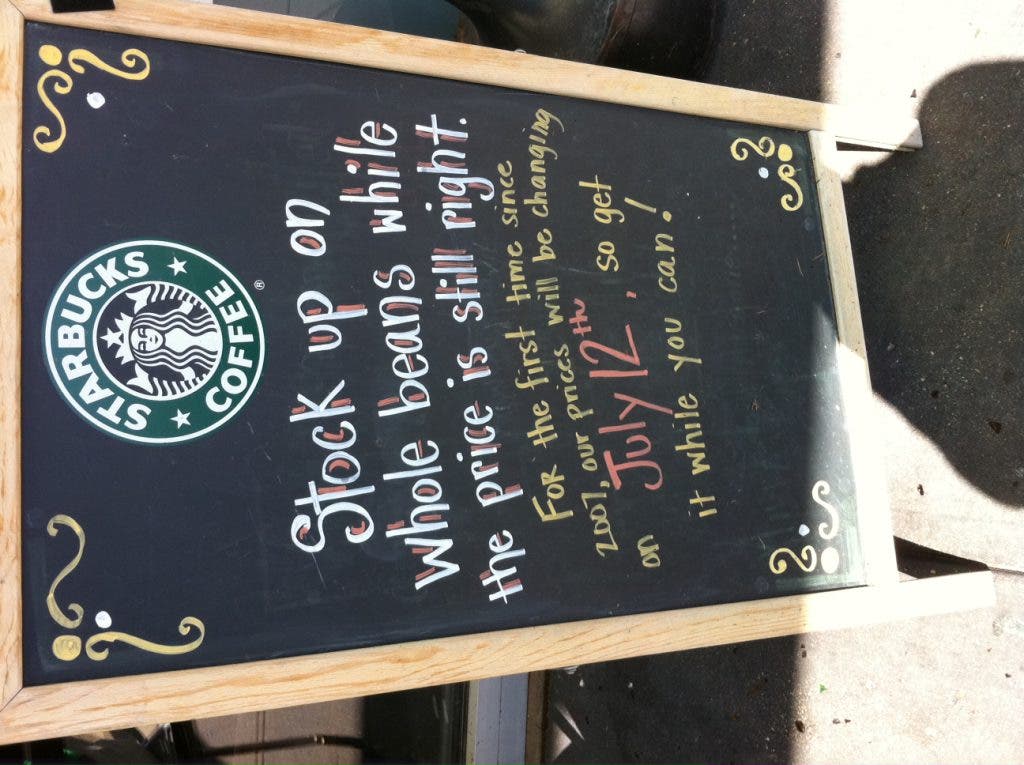 STARBUCKS COFFEE ®
Stock up on
whole beans while
the price is still right.
FOR the first time since
2007, our prices will be changing
on July 12th, so get
it while you can!